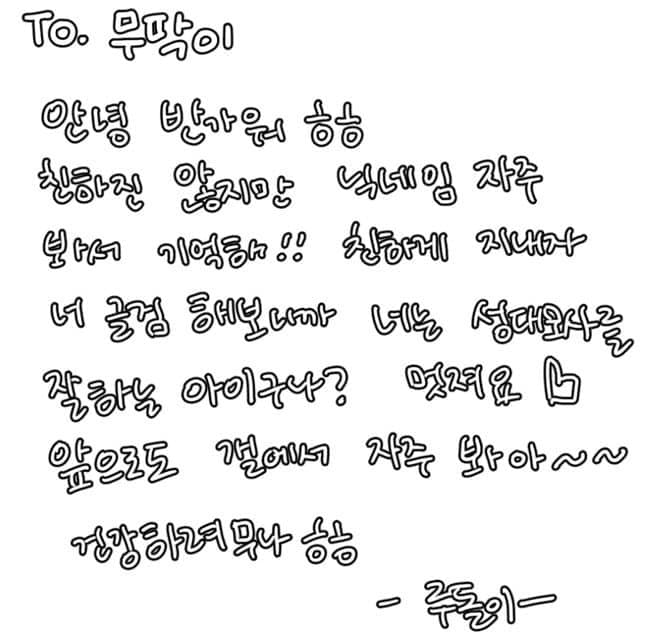 To. 무딱이
안녕 반가워 흐흐
친하진 않지만 닉네임 자주
봐서 기억해!! 친하게 지내자
너 글검 해보니까 너는 성대묘사를
잘하는 아이구나? 멋져요
앞으로도 갤에서 자주 봐아~~
건강하려무나 흐흐
- 주돌이-